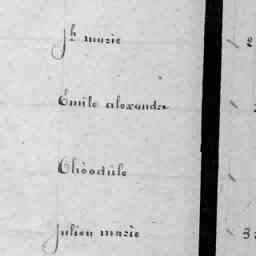 Jh marie
Emile alexandre
Théodule
Julien marie
3